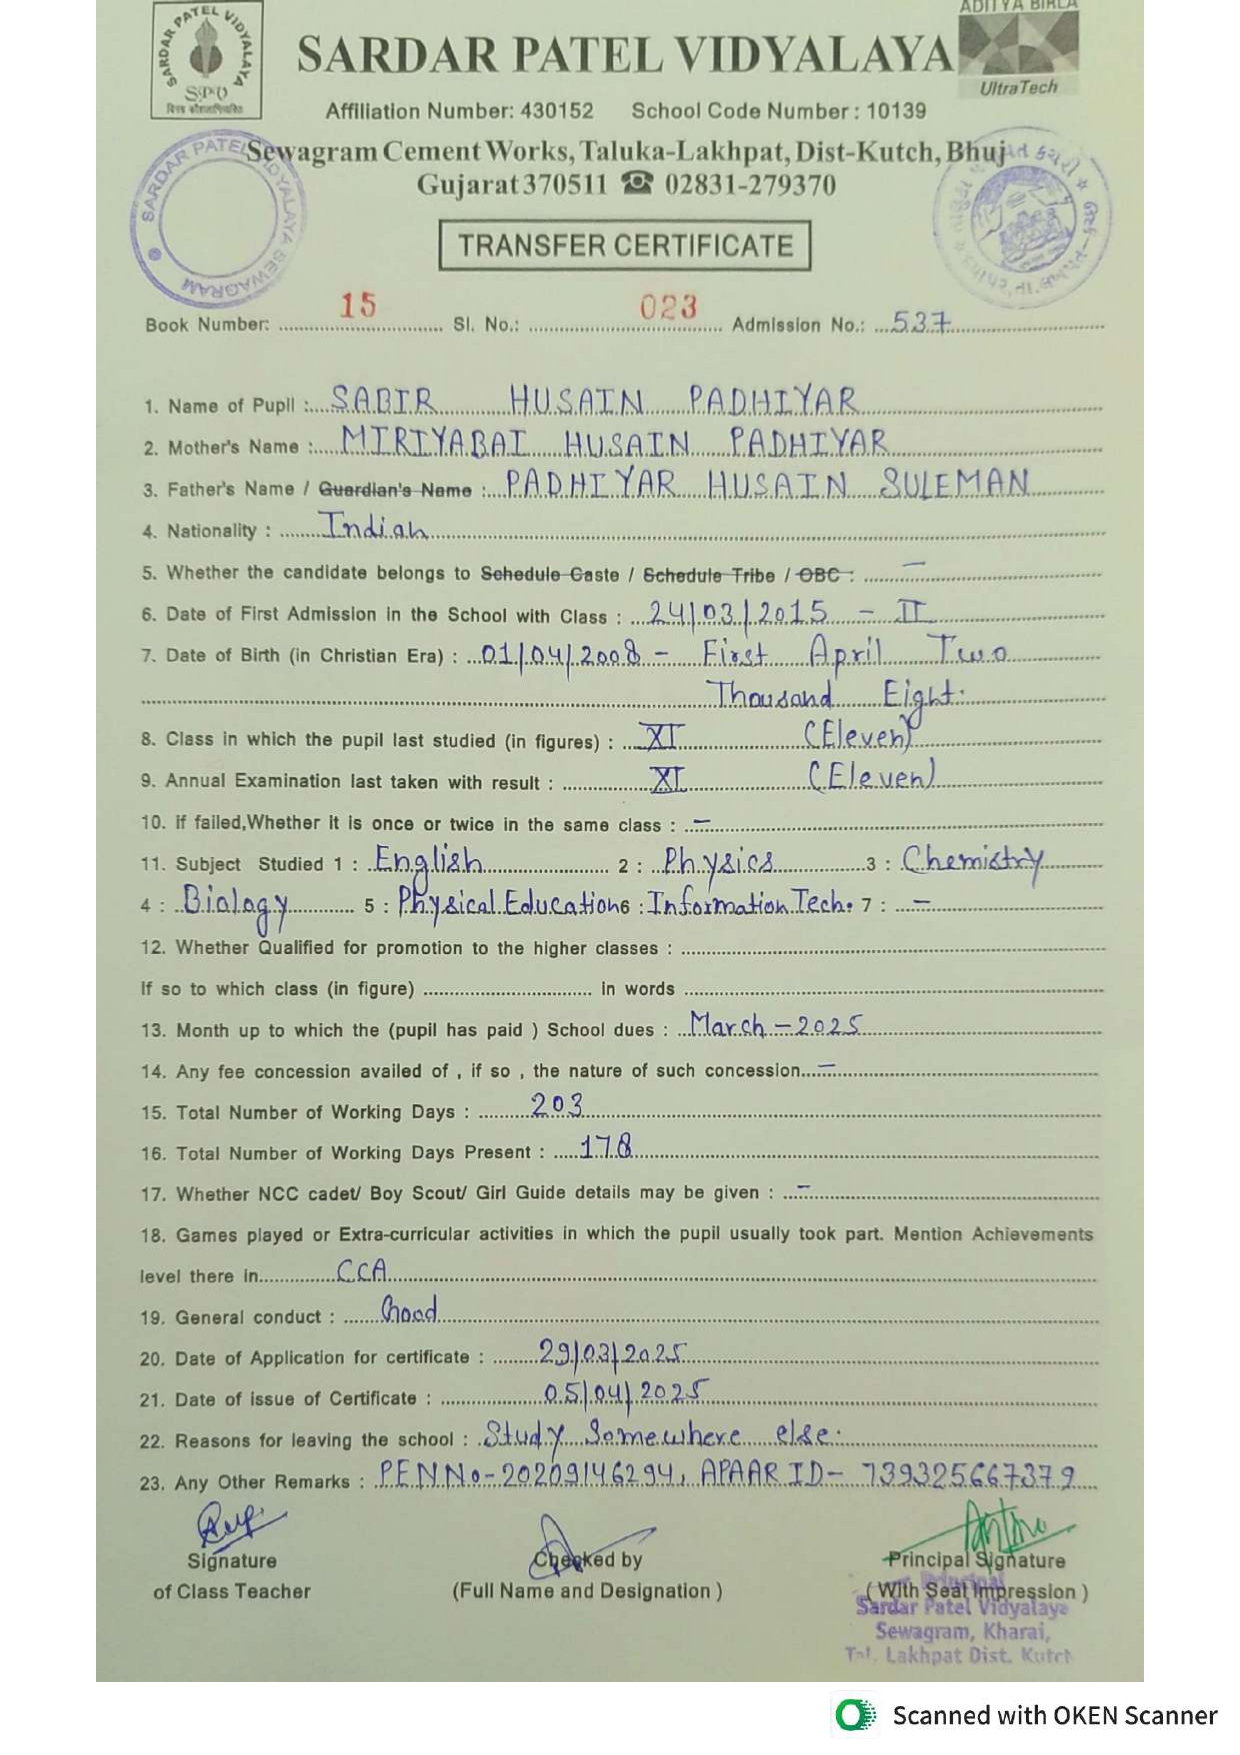 ADITYA BIRLA
SARDAR PATEL VIDYALAYA
SPV
UltraTech
SARDAR PATEL VIDYALAYA
Affiliation Number: 430152 School Code Number : 10139
Sewagram Cement Works, Taluka-Lakhpat, Dist-Kutch, Bhuj
Gujarat 370511 ☎ 02831-279370
SARDAR PATEL VIDYALAYA SEWAGRAM
TRANSFER CERTIFICATE
Book Number: 15 Sl. No.: 023 Admission No.: 537
1. Name of Pupil : SABIR HUSAIN PADHIYAR
2. Mother's Name : MIRIYABAI HUSAIN PADHIYAR
3. Father's Name / Guardian's Name : PADHIYAR HUSAIN SULEMAN
4. Nationality : Indian
5. Whether the candidate belongs to Schedule Caste / Schedule Tribe / OBC : –
6. Date of First Admission in the School with Class : 24/03/2015 – II
7. Date of Birth (in Christian Era) : 01/04/2008 – First April Two
Thousand Eight.
8. Class in which the pupil last studied (in figures) : XI (Eleven)
9. Annual Examination last taken with result : XI (Eleven)
10. if failed,Whether it is once or twice in the same class : –
11. Subject Studied 1 : English 2 : Physics 3 : Chemistry
4 : Biology 5 : Physical Education 6 : Information Tech. 7 : –
12. Whether Qualified for promotion to the higher classes :
If so to which class (in figure) in words
13. Month up to which the (pupil has paid ) School dues : March – 2025
14. Any fee concession availed of , if so , the nature of such concession –
15. Total Number of Working Days : 203
16. Total Number of Working Days Present : 178
17. Whether NCC cadet/ Boy Scout/ Girl Guide details may be given : –
18. Games played or Extra-curricular activities in which the pupil usually took part. Mention Achievements
level there in CCA
19. General conduct : Good
20. Date of Application for certificate : 29/03/2025
21. Date of issue of Certificate : 05/04/2025
22. Reasons for leaving the school : Study Somewhere else.
23. Any Other Remarks : PEN No - 20209146294, APAAR ID - 739325667379
Signature Checked by Principal Signature
of Class Teacher (Full Name and Designation ) ( With Seal Impression )
Principal
Sardar Patel Vidyalaya
Sewagram, Kharai,
Tal. Lakhpat Dist. Kutch
Scanned with OKEN Scanner